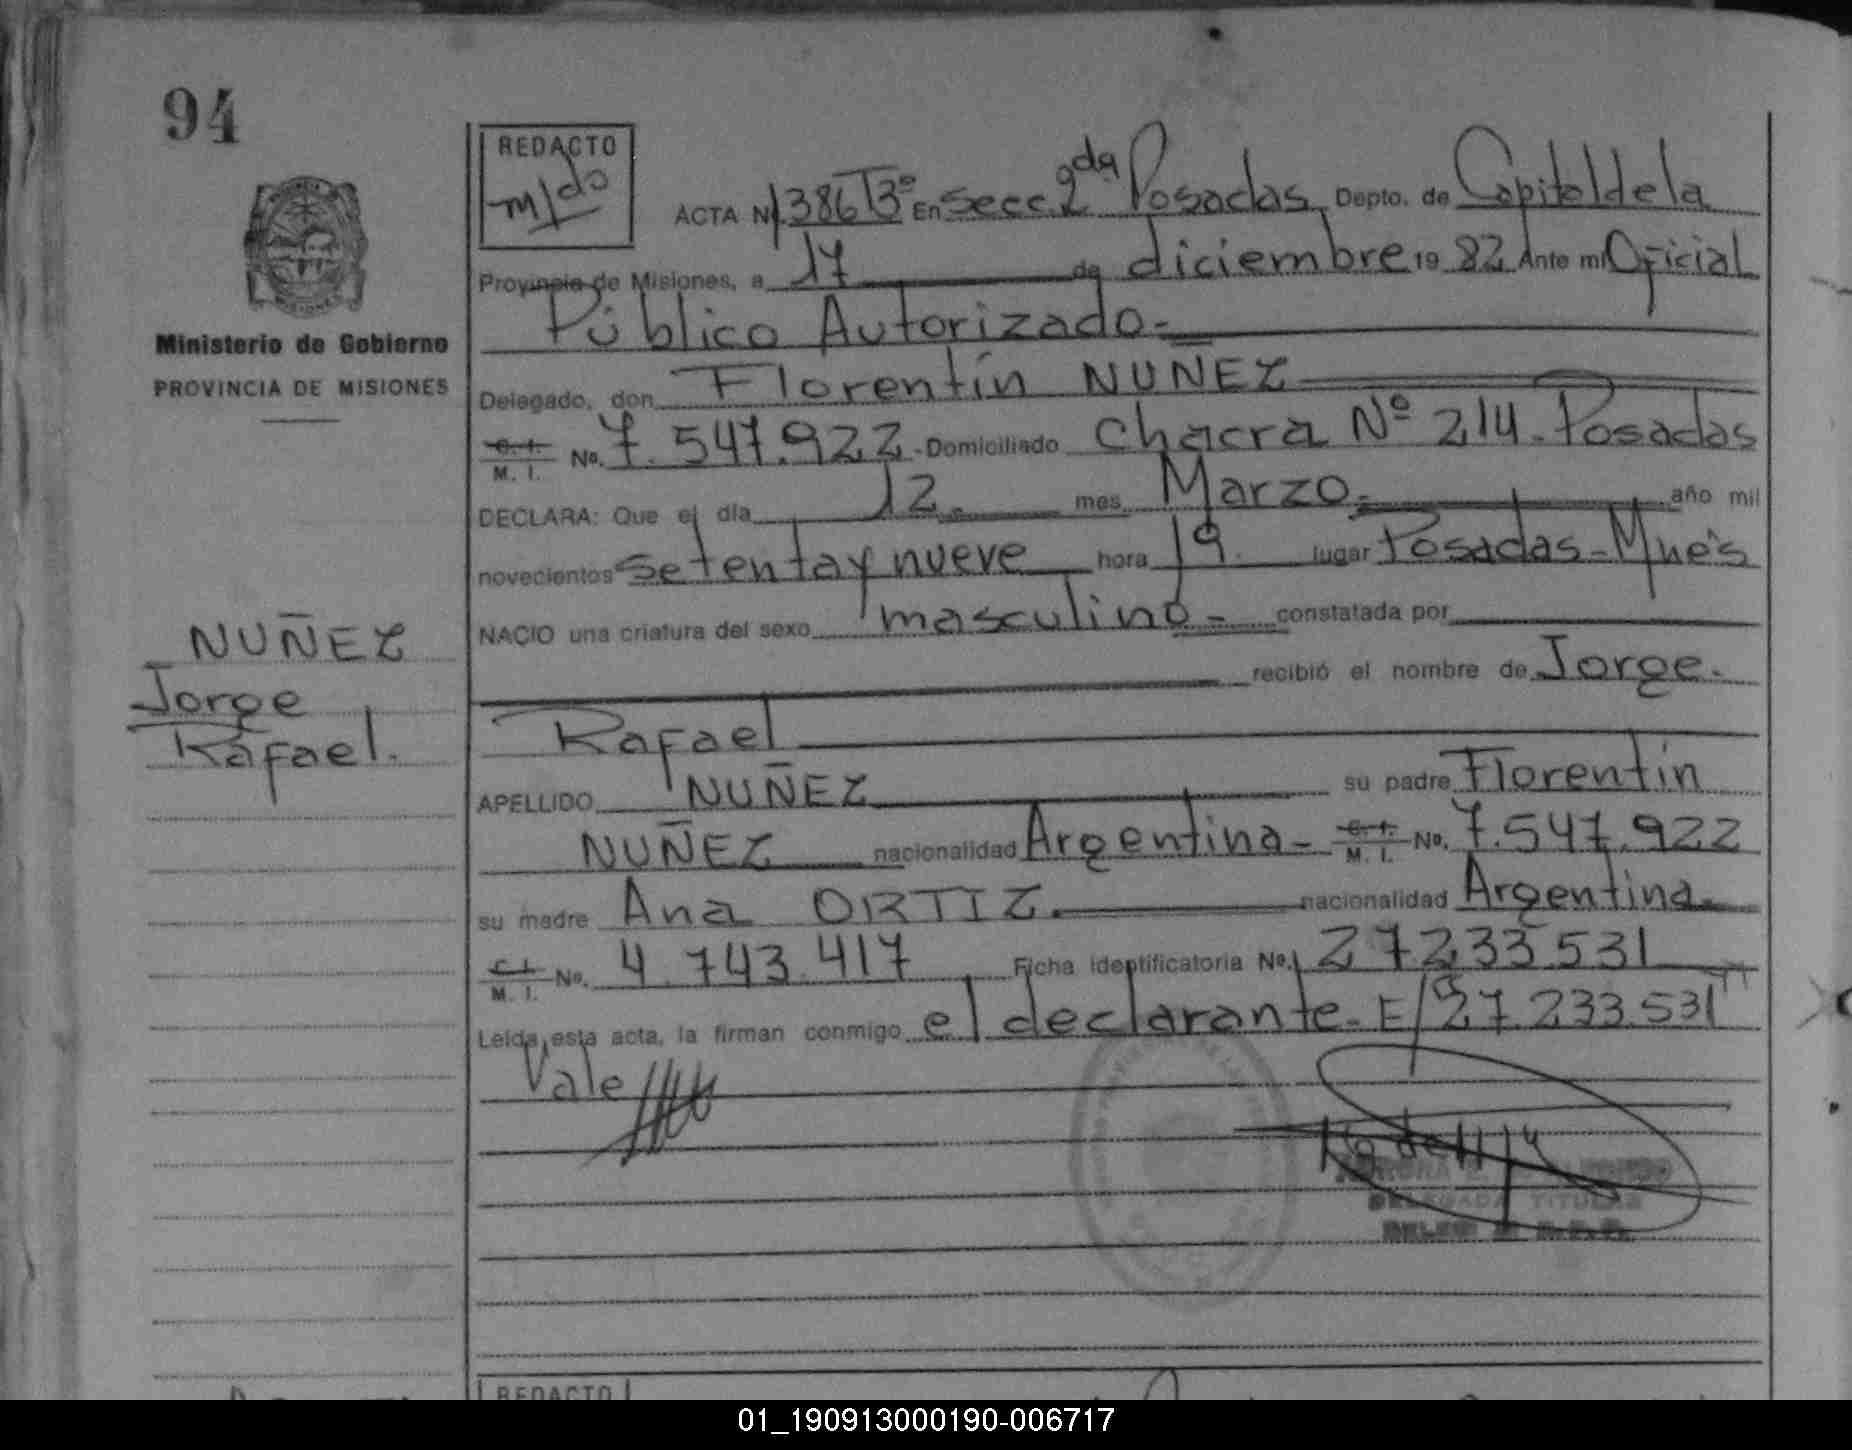 94
REDACTO
ACTA Nº 1386 Tº 3º En Secc. 2da Posadas, Depto. de Capital de la
Provincia de Misiones, a 17 de diciembre 19 82 Ante mi Oficial
Público Autorizado.-
Ministerio de Gobierno
PROVINCIA DE MISIONES
Delegado, don Florentín NUÑEZ
C. I.
M. I. No. 7.547.922.- Domiciliado Chacra Nº 214. Posadas
DECLARA: Que el día 12.- mes Marzo.- año mil
novecientos setenta y nueve hora 19. lugar Posadas - Mnes
NACIO una criatura del sexo masculino - constatada por
recibió el nombre de Jorge.
NUÑEZ
Jorge
Rafael.
Rafael
APELLIDO NUÑEZ su padre Florentín
NUÑEZ nacionalidad Argentina - C. I.
M. I. No. 7.547.922
su madre Ana ORTIZ. nacionalidad Argentina.
C. I.
M. I. No. 4.743.417 Ficha identificatoria No. 27233531
Leída esta acta, la firman conmigo el declarante. E/ 27.233.531
Vale
DELEGADA TITULAR
REDACTO
01_190913000190-006717